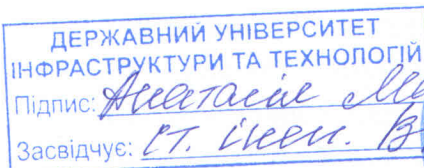 ДЕРЖАВНИЙ УНІВЕРСИТЕТ
ІНФРАСТРУКТУРИ ТА ТЕХНОЛОГІЙ
Підпис: Анастасія
Засвідчує: ст. інсп. В